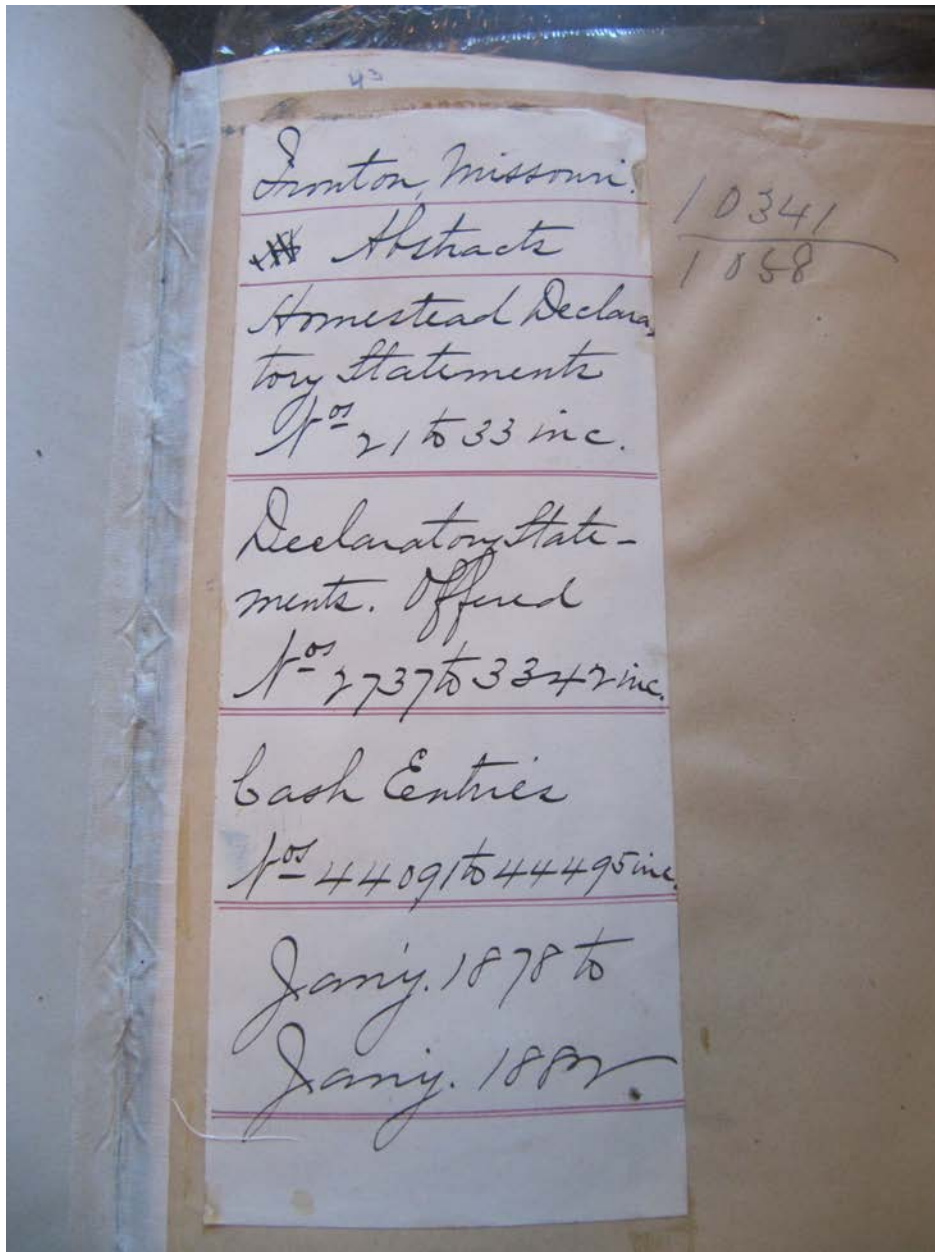 43
Ironton, Missouri.
Abstracts
Homestead Declara-
tory Statements
Nos 21 to 33 inc.
Declaratory State-
ments. Offered
Nos 2737 to 3342 inc.
Cash Entries
Nos 44091 to 44495 inc.
Jan'y. 1878 to
Jan'y. 1882
10341
1058